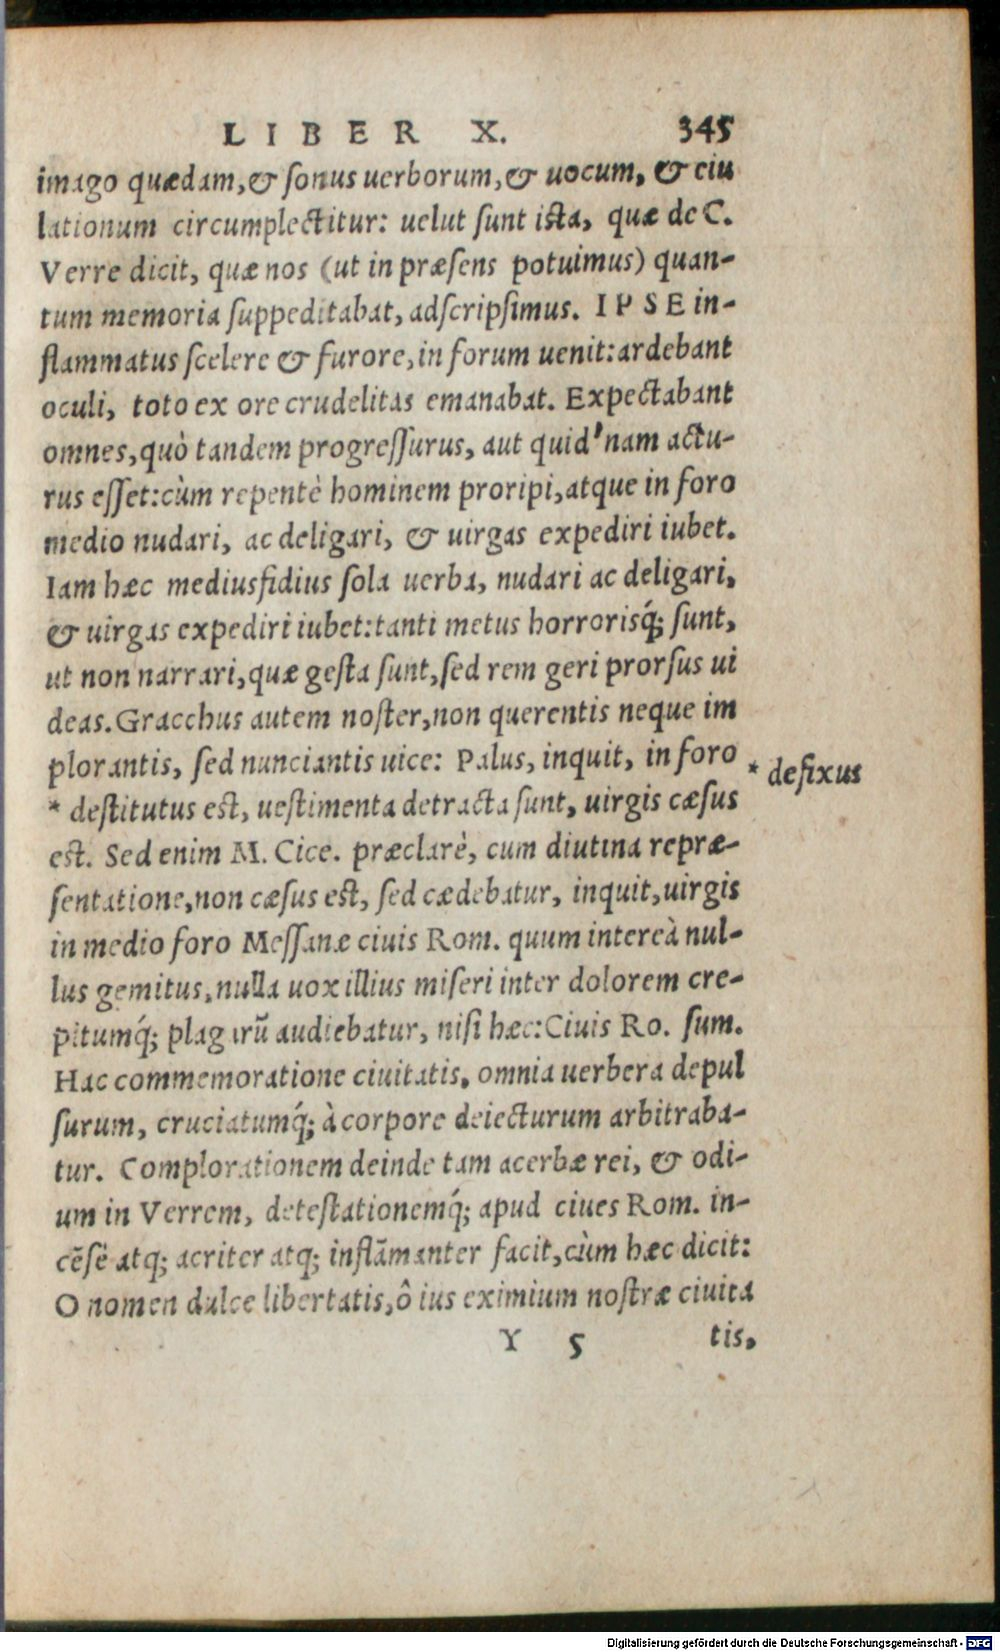 LIBER X. 345
imago quædam, & sonus uerborum, & uocum, & eiu
lationum circumplectitur: uelut sunt ista, quæ de C.
Verre dicit, quæ nos (ut in præsens potuimus) quan-
tum memoria suppeditabat, adscripsimus. IPSE in-
flammatus scelere & furore, in forum uenit: ardebant
oculi, toto ex ore crudelitas emanabat. Expectabant
omnes, quò tandem progressurus, aut quid'nam actu-
rus esset: cùm repentè hominem proripi, atque in foro
medio nudari, ac deligari, & uirgas expediri iubet.
Iam hæc mediusfidius sola uerba, nudari ac deligari,
& uirgas expediri iubet: tanti metus horrorisq́; sunt,
ut non narrari, quæ gesta sunt, sed rem geri prorsus ui
deas. Gracchus autem noster, non querentis neque im
plorantis, sed nunciantis uice: Palus, inquit, in foro
* defixus
* destitutus est, uestimenta detracta sunt, uirgis cæsus
est. Sed enim M. Cice. præclarè, cum diutina repræ-
sentatione, non cæsus est, sed cædebatur, inquit, uirgis
in medio foro Messanæ ciuis Rom. quum intereà nul-
lus gemitus, nulla uox illius miseri inter dolorem cre-
pitumq́; plagarũ audiebatur, nisi hæc: Ciuis Ro. sum.
Hac commemoratione ciuitatis, omnia uerbera depul
surum, cruciatumq́; à corpore deiecturum arbitraba-
tur. Complorationem deinde tam acerbæ rei, & odi-
um in Verrem, detestationemq́; apud ciues Rom. in-
cẽsè atq; acriter atq; inflãmanter facit, cùm hæc dicit:
O nomen dulce libertatis, ô ius eximium nostræ ciuita
Y 5 tis,
Digitalisierung gefördert durch die Deutsche Forschungsgemeinschaft - DFG